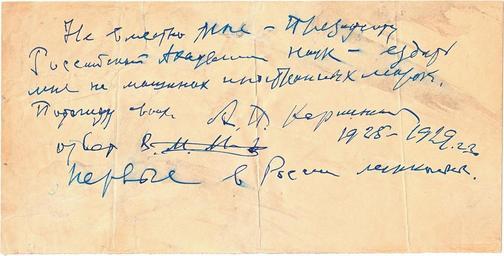 Не вместно мне – Президенту
Российской Академии наук – ездить
мне на машинах иностранных марок.
А. П. Карпинский
1928–1929 г.г.
ответ В. М.
Первые в России